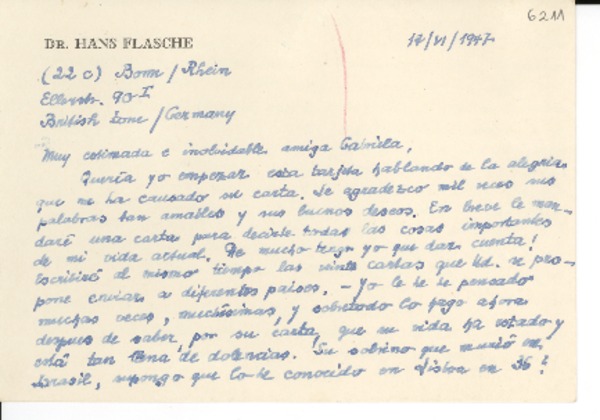 6211
DR. HANS FLASCHE
17/VI/1947
(22 c) Bonn / Rhein
Ellerstr. 90 I
British Zone / Germany
Muy estimada e inolvidable amiga Gabriela,
Quería yo empezar esta tarjeta hablando de la alegría
que me ha causado su carta. Le agradezco mil veces sus
palabras tan amables y sus buenos deseos. En breve le man-
daré una carta para decirle todas las cosas importantes
de mi vida actual. De mucho tengo yo que dar cuenta!
Escribiré al mismo tiempo las veinte cartas que Ud. se pro-
pone enviar a diferentes países. - Yo le he pensado
muchas veces, muchísimas, y sobretodo lo hago ahora
después de saber, por su carta, que su vida ha estado y
está tan llena de dolencias. Su sobrino que murió en
Brasil, supongo que lo he conocido en Lisboa en 36?